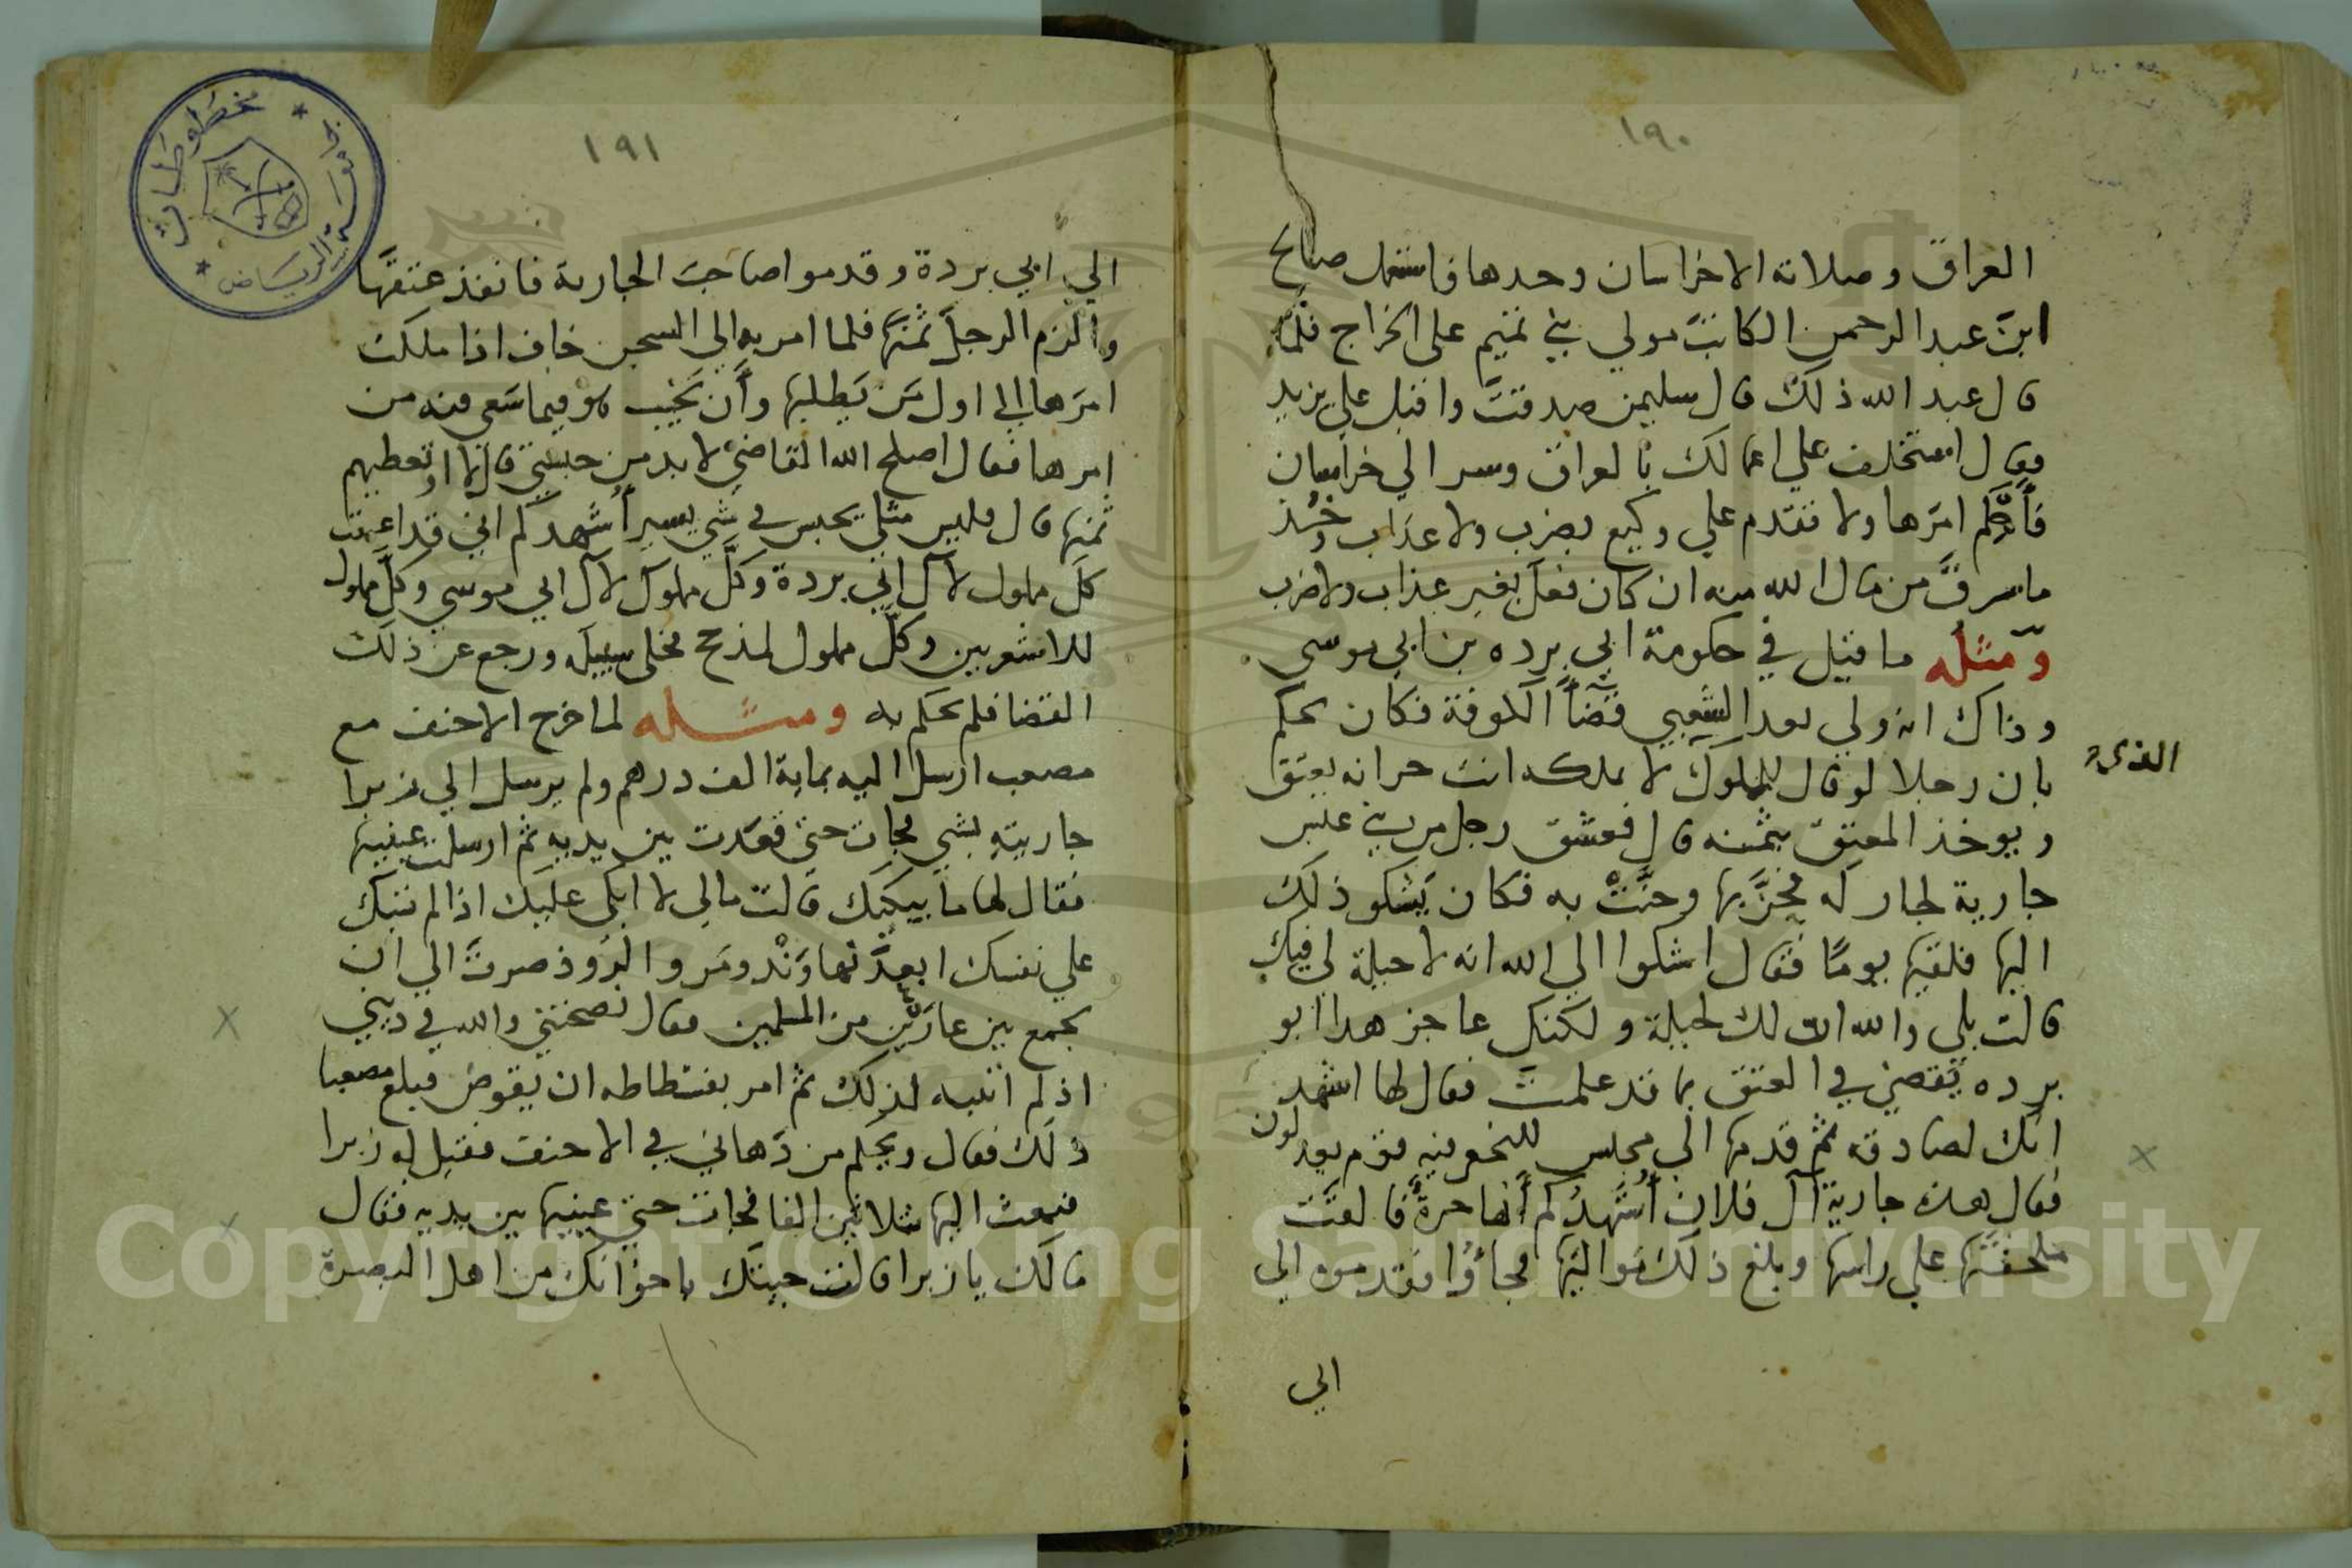 ١٩٠
العراق وصلاته الا خراسان وحدها فاستعمل صالح
ابن عبد الرحمن الكاتب مولي بني تميم على الخراج فلما
قال عبد الله ذلك قال سليمن صدقت واقبل علي يزيد
فقال استخلف علي اعمالك بالعراق وسر الي خراسان
امرها ولا تقدم علي وكيع بضرب ولا عذاب وخذ
ما سرق من مال الله منه ان كان فعل بغير عذاب ولا ضرب
ومثله ما قيل في حكومة ابي برده بن ابي موسي
وذاك انه ولي بعد الشعبي قضاأ الكوفة فكان يحكم
بان رجلا لو قال للملوك لا يملكه انت حر انه يعتق
الذي
ويوخذ المعتق بثمنه قال فعشق رجل من بني عبس
جارية لجار له فجن بها وجنت به فكان يشكو ذلك
اليها فلقيها يومًا فقال اشكوا الي الله انه لا حيلة لي فيك
قالت بلي والله ان لك لحيلة ولكنك عاجز هذا ابو
برده يقضي في العتق بما قد علمت فقال لها اشهد
انك لصادقه ثم قدمها الي مجلس للنخع فيه قوم يعدلون
فقال هذه جارية آل فلان أشهدكم أنها حرة فالقت
ملحفتها علي راسها وبلغ ذلك مواليها فجاؤا فقدموه الي
الي
١٩١
الي ابي بردة وقدموا صاحب الجارية فانفذ عتقها
والزم الرجل ثمنها فلما امر به الي السجن خاف اذا ملكت
امرها الي اول من يطلبها وأن يخيب هو فيما سعي فيه من
امرها فقال اصلح الله القاضي لا بد من حبسي قال لا او تعطيهم
ثمنها قال فليس مثلي يحبس في شي يسير أشهدكم اني قد اعتقت
كل مملوك لآل ابي بردة وكل مملوك لآل ابي موسي وكل مملوك
للاشعريين وكل مملوك لمذحج فخلي سبيله ورجع عن ذلك
القضا فلم يحكم به ومثله لما خرج الاحنف مع
مصعب ارسل اليه بماية الف درهم ولم يرسل الي زبرا
جاريته بشي فجات حتي قعدت بين يديه ثم ارسلت عينيها
فقال لها ما يبكيك قالت مالي لا ابكي عليك اذا لم تبك
علي نفسك ابعد نهاوند ومرو الروذ صرت الي ان
تجمع بين عارين من المسلمين فقال نصحتني والله في ديني
اذ لم انتبه لذلك ثم امر بفسطاطه ان يقوض فبلغ مصعبا
ذلك فقال ويحكم من دهاني في الاحنف فقيل له زبرا
فبعث اليها بثلاثين الفا فجات حتي عينيها بين يديه فقال
مالك يا زبرا قالت جيتك باخوانك من اهل البصرة
مخطوطات
جامعة الرياض
Copyright © King Saud University